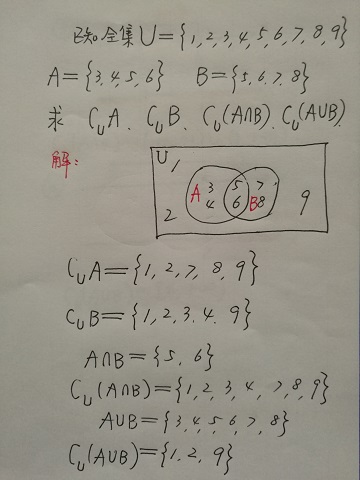 已知全集U={1,2,3,4,5,6,7,8,9}
A={3,4,5,6} B={5,6,7,8}
求 C_U A、C_U B、C_U(A∩B)、C_U(A∪B).
解:
U 1
A 3 5 7
4 6 B 8
2 9
C_U A={1,2,7,8,9}
C_U B={1,2,3,4,9}
A∩B={5,6}
C_U(A∩B)={1,2,3,4,7,8,9}
A∪B={3,4,5,6,7,8}
C_U(A∪B)={1,2,9}